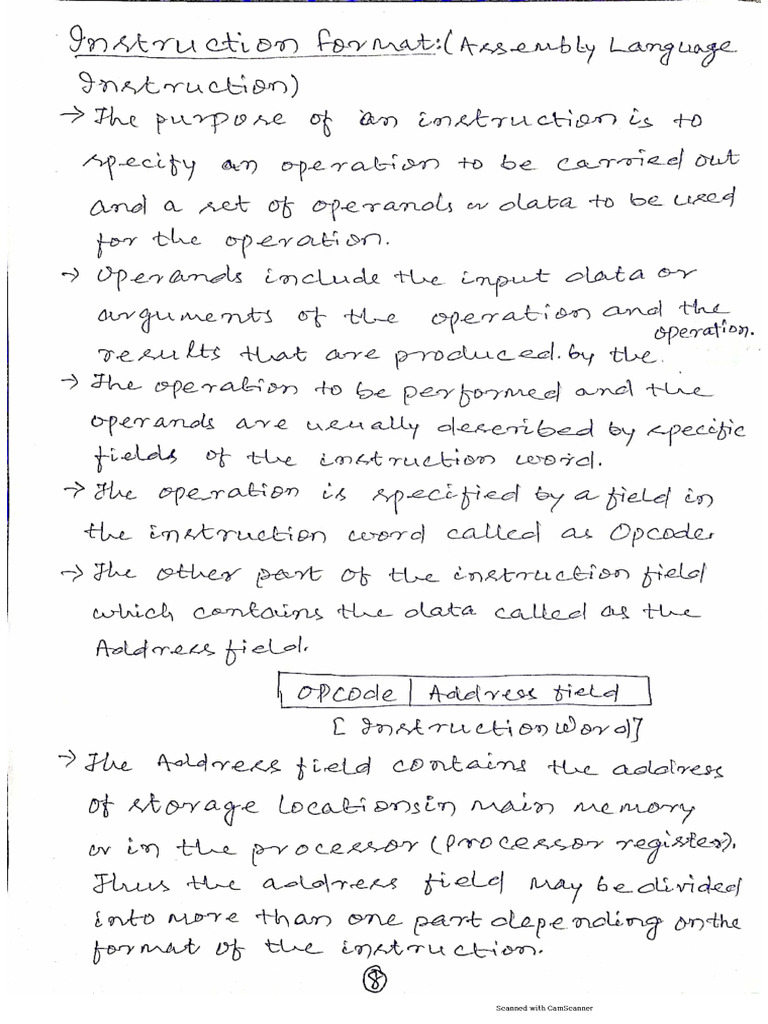 Instruction format:(Assembly Language
Instruction)
→ The purpose of an instruction is to
specify an operation to be carried out
and a set of operands or data to be used
for the operation.
→ Operands include the input data or
arguments of the operation and the
results that are produced. by the operation.
→ The operation to be performed and the
operands are usually described by specific
fields of the instruction word.
→ The operation is specified by a field in
the instruction word called as Opcode.
→ The other part of the instruction field
which contains the data called as the
Address field.
OPCode | Address field
[Instruction Word]
→ The Address field contains the address
of storage locations in main memory
or in the processor (Processor register).
Thus the address field may be divided
into more than one part depending on the
format of the instruction.
8
Scanned with CamScanner